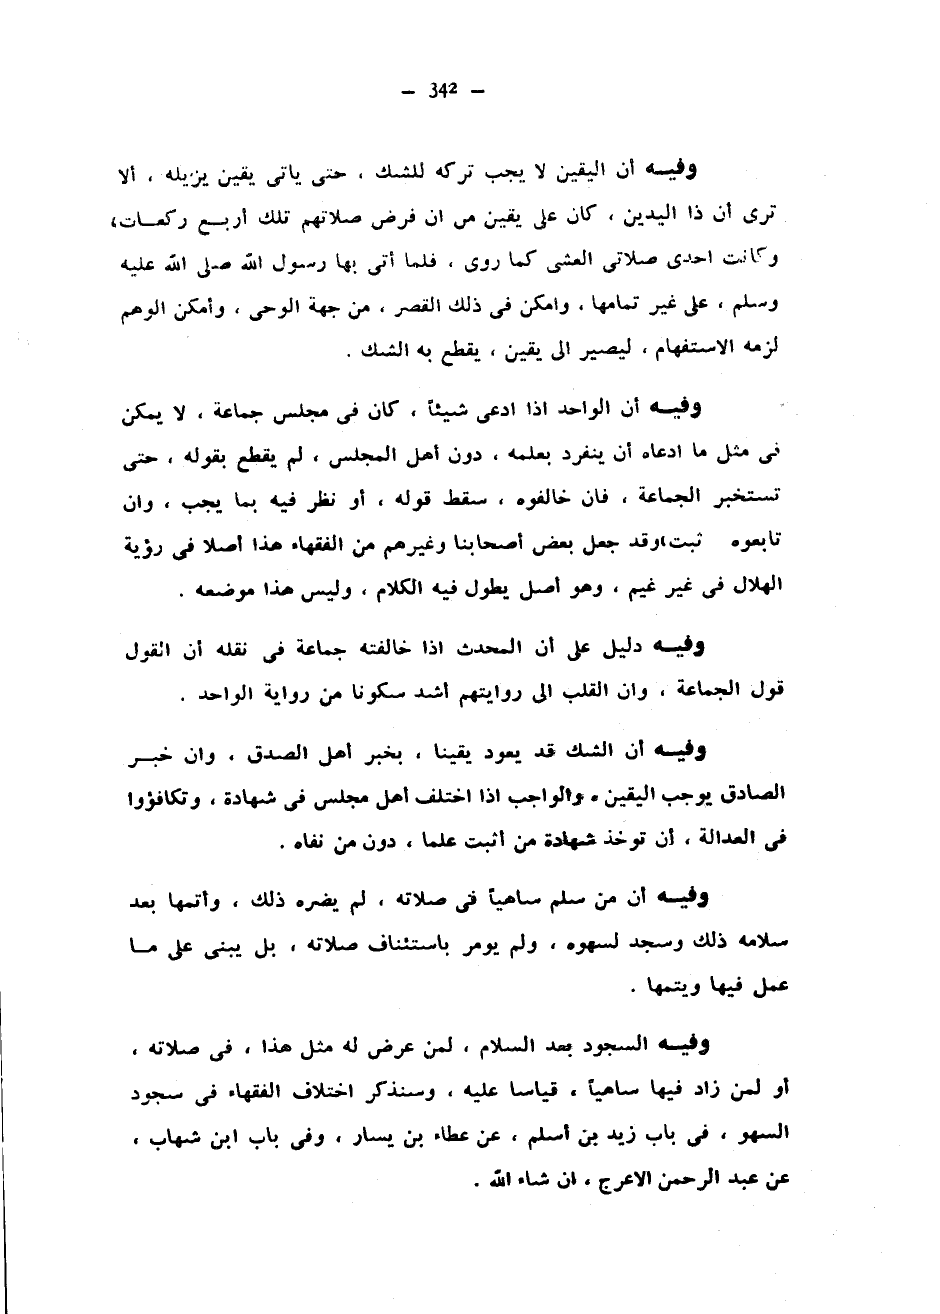 — 342 —
وفيـــه أن اليقين لا يجب تركه للشك ، حتى ياتى يقين يزيله ، ألا
ترى أن ذا اليدين ، كان على يقين من ان فرض صلاتهم تلك أربـــع ركعـــات،
وكانت احدى صلاتى العشى كما روى ، فلما أتى بها رسول الله صلى الله عليه
وسلم ، على غير تمامها ، وامكن فى ذلك القصر ، من جهة الوحى ، وأمكن الوهم
لزمه الاستفهام ، ليصير الى يقين ، يقطع به الشك .
وفيـــه أن الواحد اذا ادعى شيئاً ، كان فى مجلس جماعة ، لا يمكن
فى مثل ما ادعاه أن ينفرد بعلمه ، دون أهل المجلس ، لم يقطع بقوله ، حتى
تستخبر الجماعة ، فان خالفوه ، سقط قوله ، أو نظر فيه بما يجب ، وان
تابعوه ثبت،وقد جعل بعض أصحابنا وغيرهم من الفقهاء هذا أصلا فى رؤية
الهلال فى غير غيم ، وهو أصل يطول فيه الكلام ، وليس هذا موضعه .
وفيـــه دليل على أن المحدث اذا خالفته جماعة فى نقله أن القول
قول الجماعة ، وان القلب الى روايتهم أشد سكونا من رواية الواحد .
وفيـــه أن الشك قد يعود يقينا ، بخبر أهل الصدق ، وان خبـــر
الصادق يوجب اليقين ، والواجب اذا اختلف أهل مجلس فى شهادة ، وتكافؤوا
فى العدالة ، أن توخذ شهادة من أثبت علما ، دون من نفاه .
وفيـــه أن من سلم ساهياً فى صلاته ، لم يضره ذلك ، وأتمها بعد
سلامه ذلك وسجد لسهوه ، ولم يومر باستئناف صلاته ، بل يبنى على مـــا
عمل فيها ويتمها .
وفيـــه السجود بعد السلام ، لمن عرض له مثل هذا ، فى صلاته ،
أو لمن زاد فيها ساهياً ، قياسا عليه ، وسنذكر اختلاف الفقهاء فى سجود
السهو ، فى باب زيد بن أسلم ، عن عطاء بن يسار ، وفى باب ابن شهاب ،
عن عبد الرحمن الاعرج ، ان شاء الله .